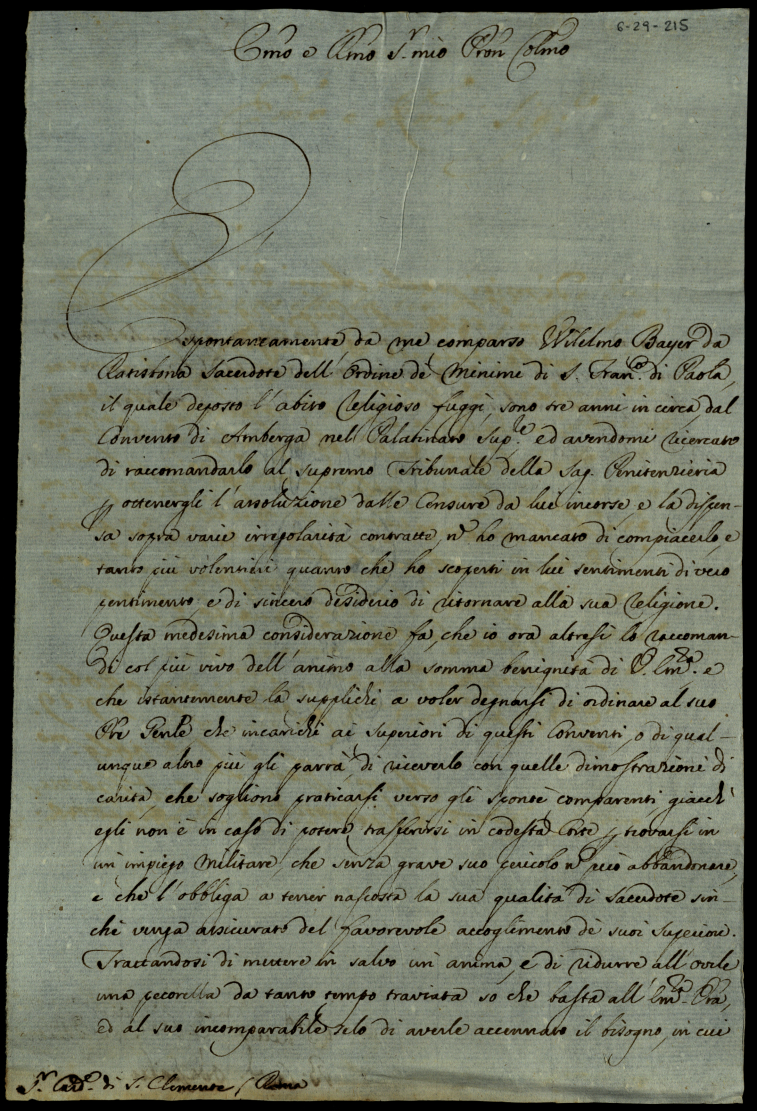 6-29-215
Emo e Rmo Sr. mio Pron Colmo
Spontaneamente da me comparso Wilelmo Bayer da
Ratisbona Sacerdote dell'Ordine de' Minimi di S. Franco. di Paola,
il quale deposto l'abito Religioso fuggì, sono tre anni in circa dal
Convento di Amberga nel Palatinato Supre. ed avendomi ricercato
di raccomandarlo al supremo Tribunale della Sag. Penitenzieria
p ottenergli l'assoluzione dalle Censure da lui incorse, e la dispen-
sa sopra varie irregolarità contratte, nõ ho mancato di compiacerlo, e
tanto più volentieri quanto che ho scoperti in lui sentimenti di vero
pentimento e di sincero desiderio di ritornare alla sua Religione.
Questa medesima considerazione fa, che io ora altresì lo raccoman-
di col più vivo dell'animo alla somma benignità di V. Emza. e
che istantemente la supplichi a voler degnarsi di ordinare al suo
Pre Genle che incarichi ai Superiori di questi Conventi, o di qual-
unque altro più gli parrà, di riceverlo con quelle dimostrazioni di
carità, che sogliono praticarsi verso gli sponte comparenti giacchè
egli non è in caso di potere trasferirsi in codesta Corte p trovarsi in
un impiego Militare che senza grave suo pericolo nõ può abbandonare,
e che l'obbliga a tener nascosta la sua qualità di Sacerdote sin-
chè venga assicurato del favorevole accoglimento de suoi Superiori.
Trattandosi di mettere in salvo un'anima, e di ridurre all'ovile
una pecorella da tanto tempo traviata so che basta all'Emza. Vra,
ed al suo incomparabile zelo di averle accennato il bisogno, in cui
Sr. Cardl. di S. Clemente / Roma